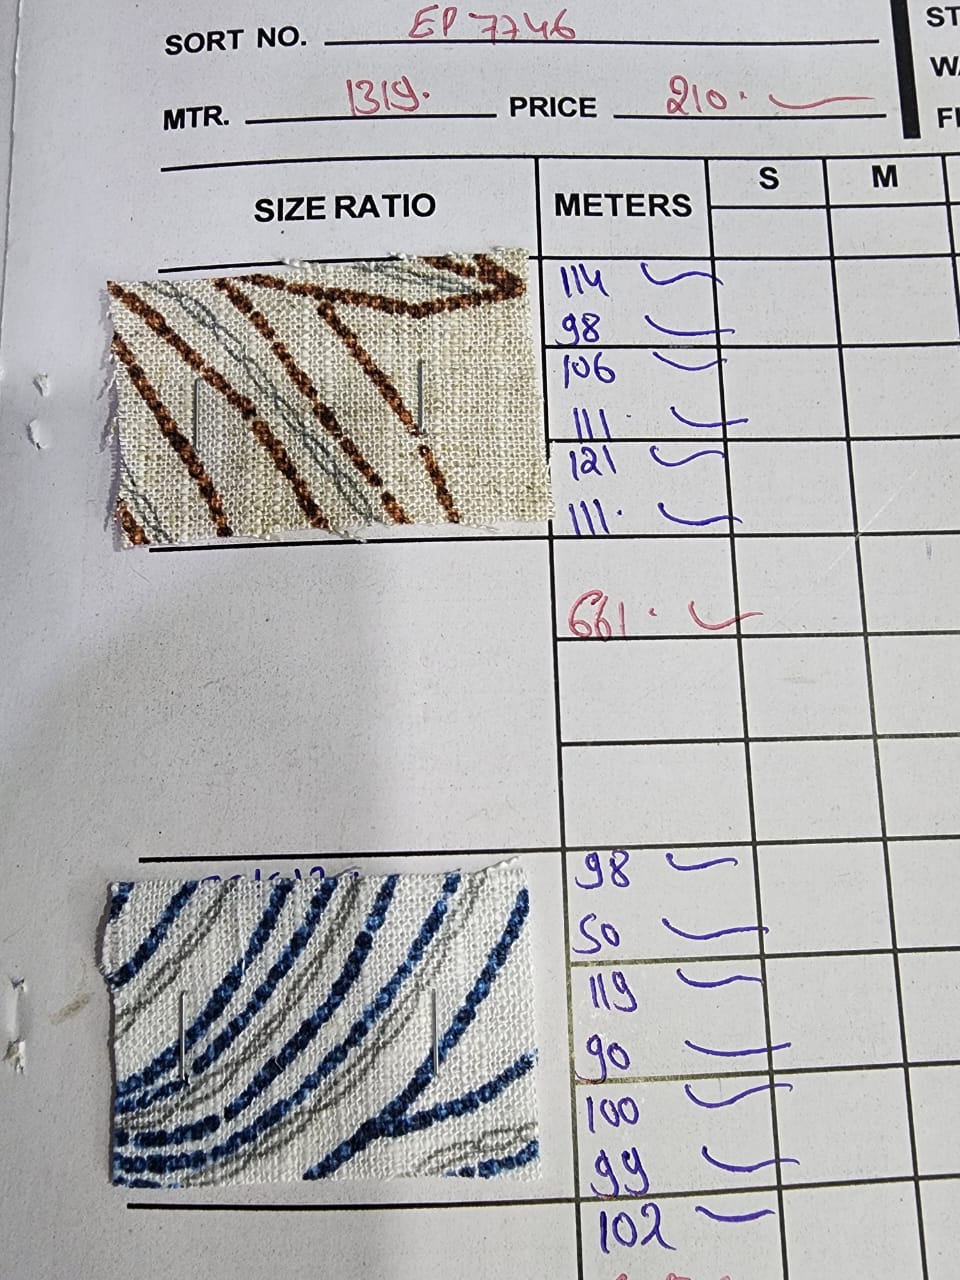 SORT NO. EP 7746
MTR. 1319. PRICE 210.
ST
W
FI
SIZE RATIO METERS S M
114
98
106
111
121
111.
661.
98
50
119
90
100
99
102